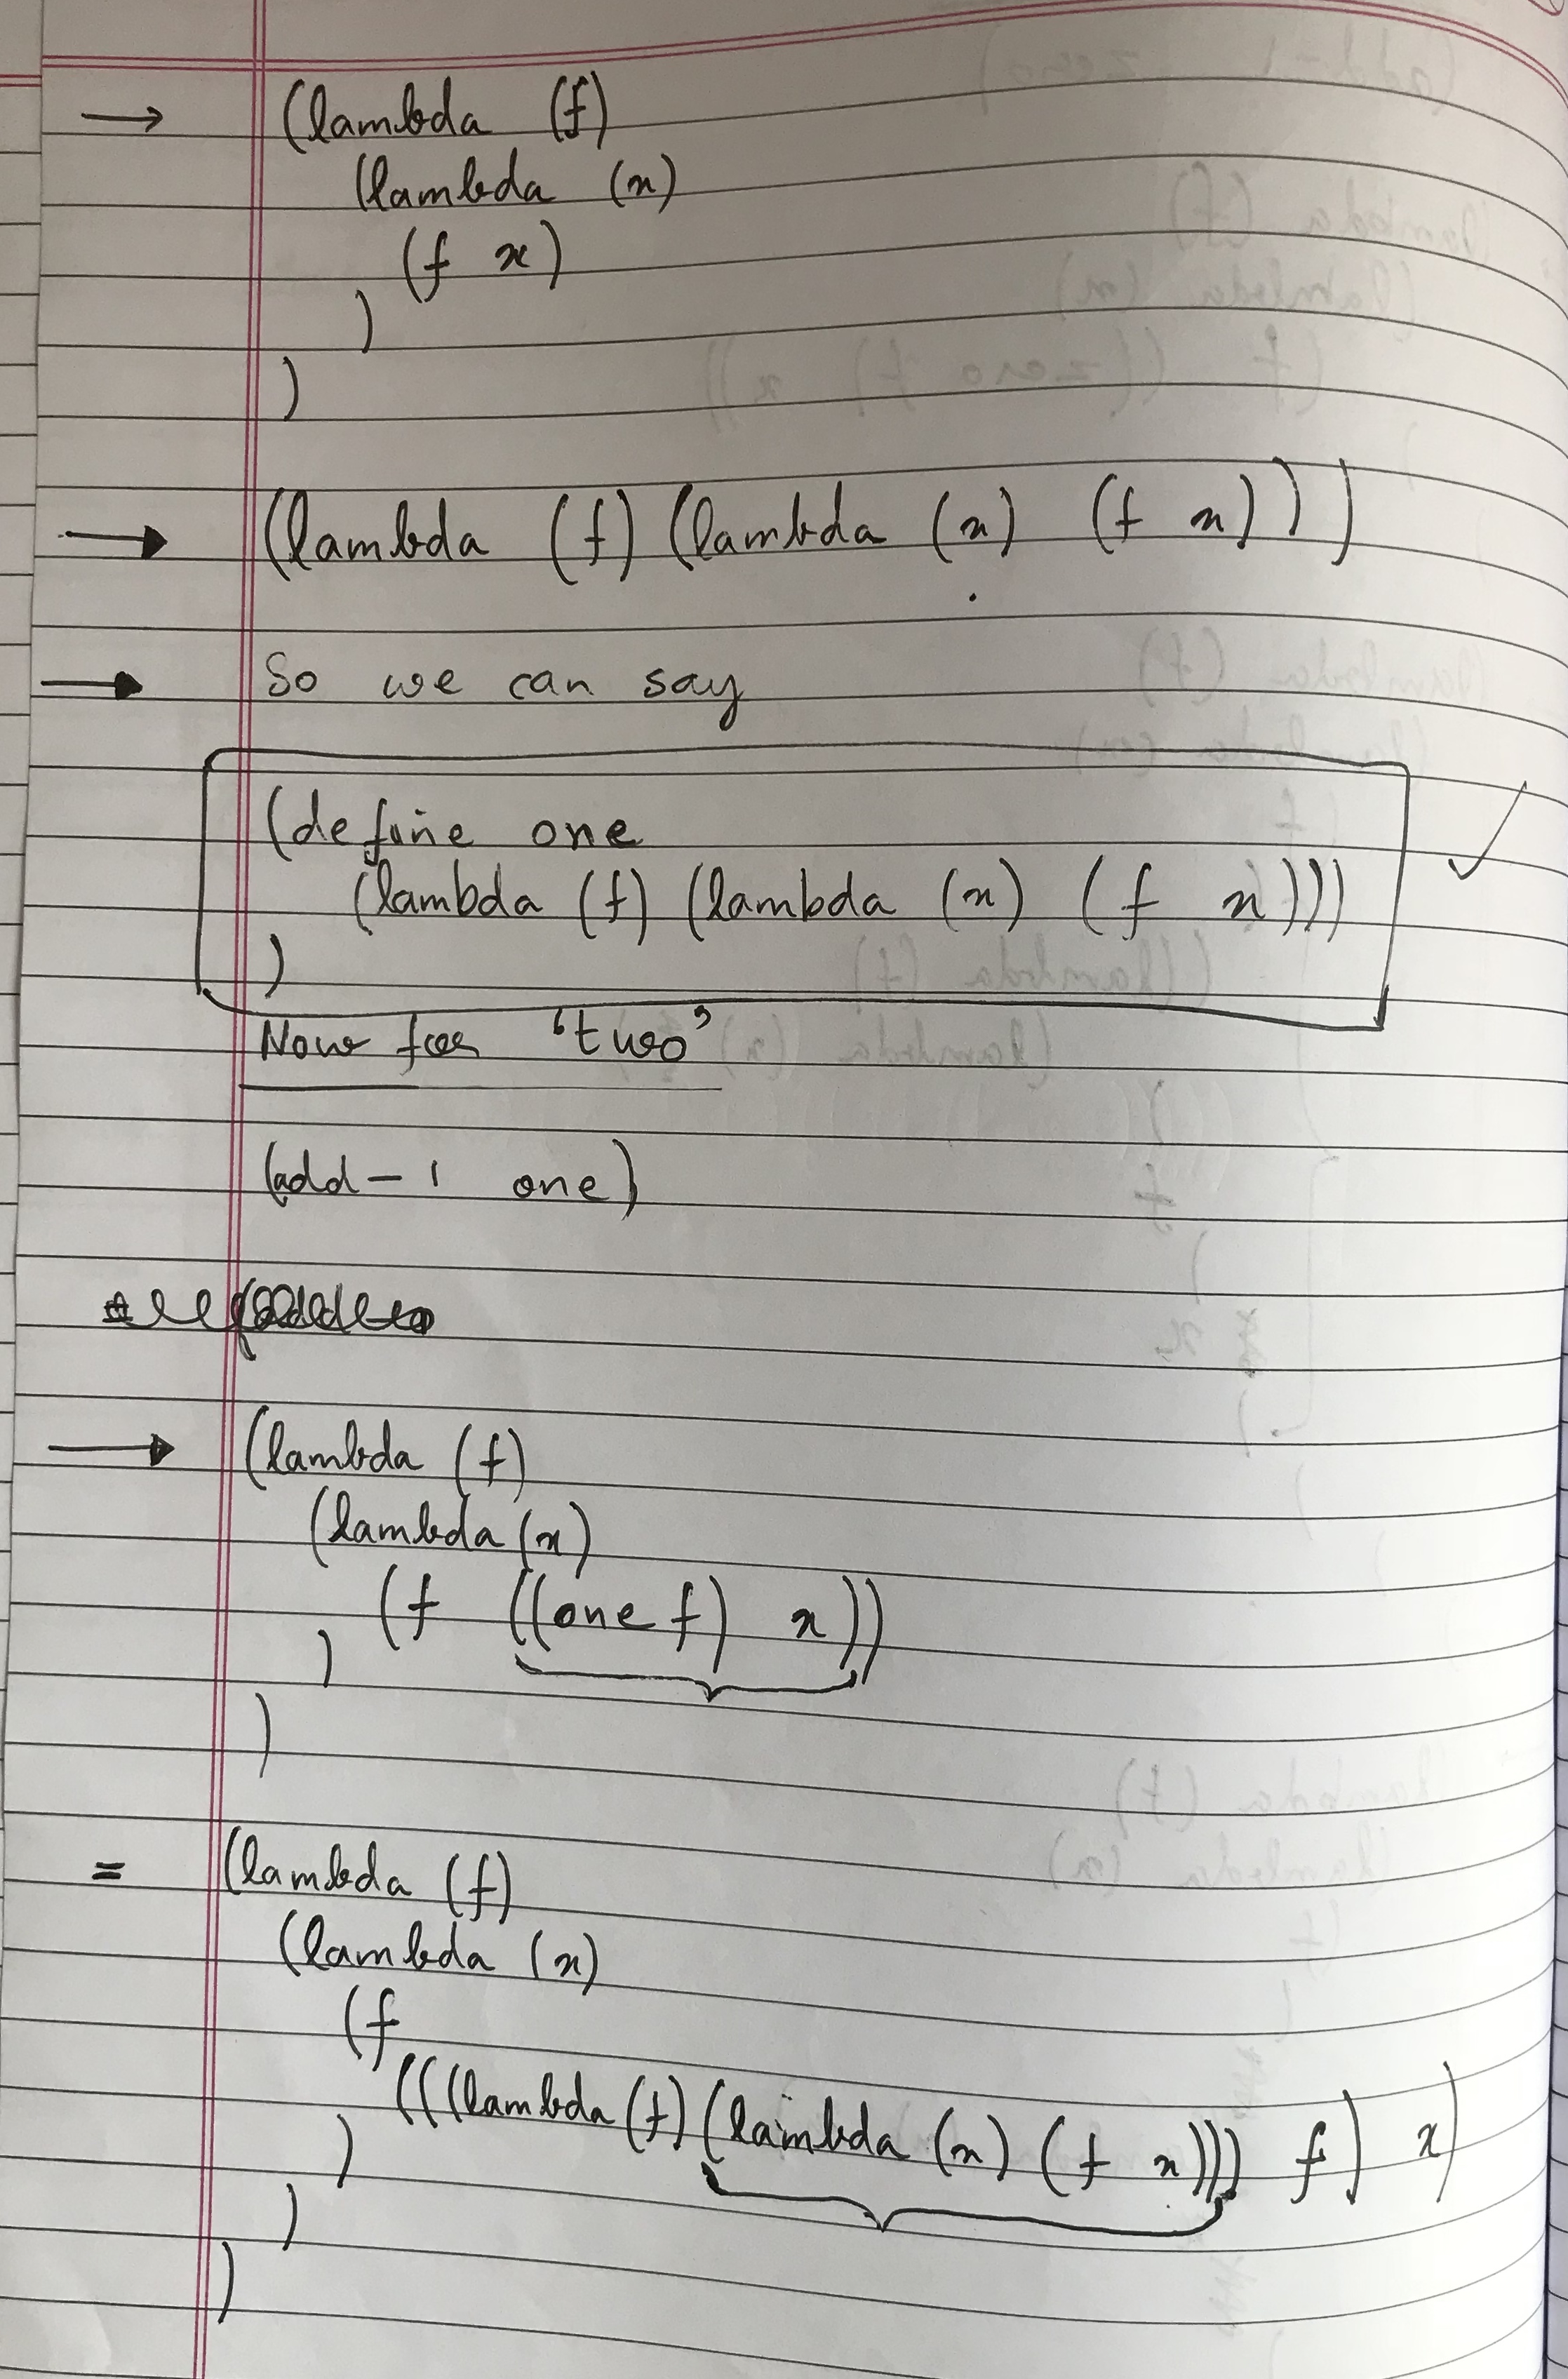 → (lambda (f)
(lambda (x)
(f x)
)
)
→ (lambda (f) (lambda (x) (f x)))
→ So we can say
(define one
(lambda (f) (lambda (x) (f x)))
)
Now for ‘two’
(add-1 one)
→ (lambda (f)
(lambda (x)
(f ((one f) x))
)
)
= (lambda (f)
(lambda (x)
(f
(((lambda (f) (lambda (x) (f x))) f) x)
)
)
)